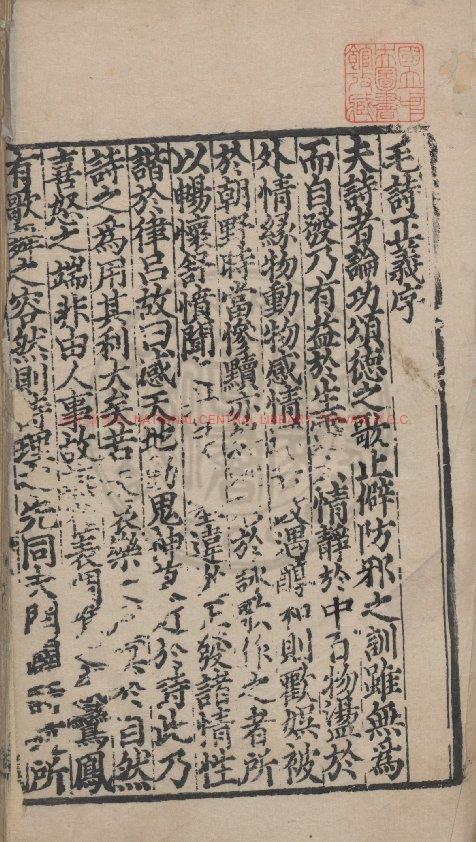 國立中央圖書館收藏
毛詩正義序
夫詩者論功頌德之歌止僻防邪之訓雖無為
而自發乃有益於生情靜於中百物盪於
外情緣物動物感情政遇醇和則歡娛被
於朝野時當慘黷亦於詠歌作之者所
以暢懷舒憤聞違發諸情性
諧於律呂故曰感天地動鬼神莫近於詩此乃
詩之為用其利大矣若哀樂於自然
喜怒之端非由人事故表鸞鳳
有歌舞之容然則詩理之先同夫開所
NATIONAL CENTRAL LIBRARY, TAIWAN R.O.C.